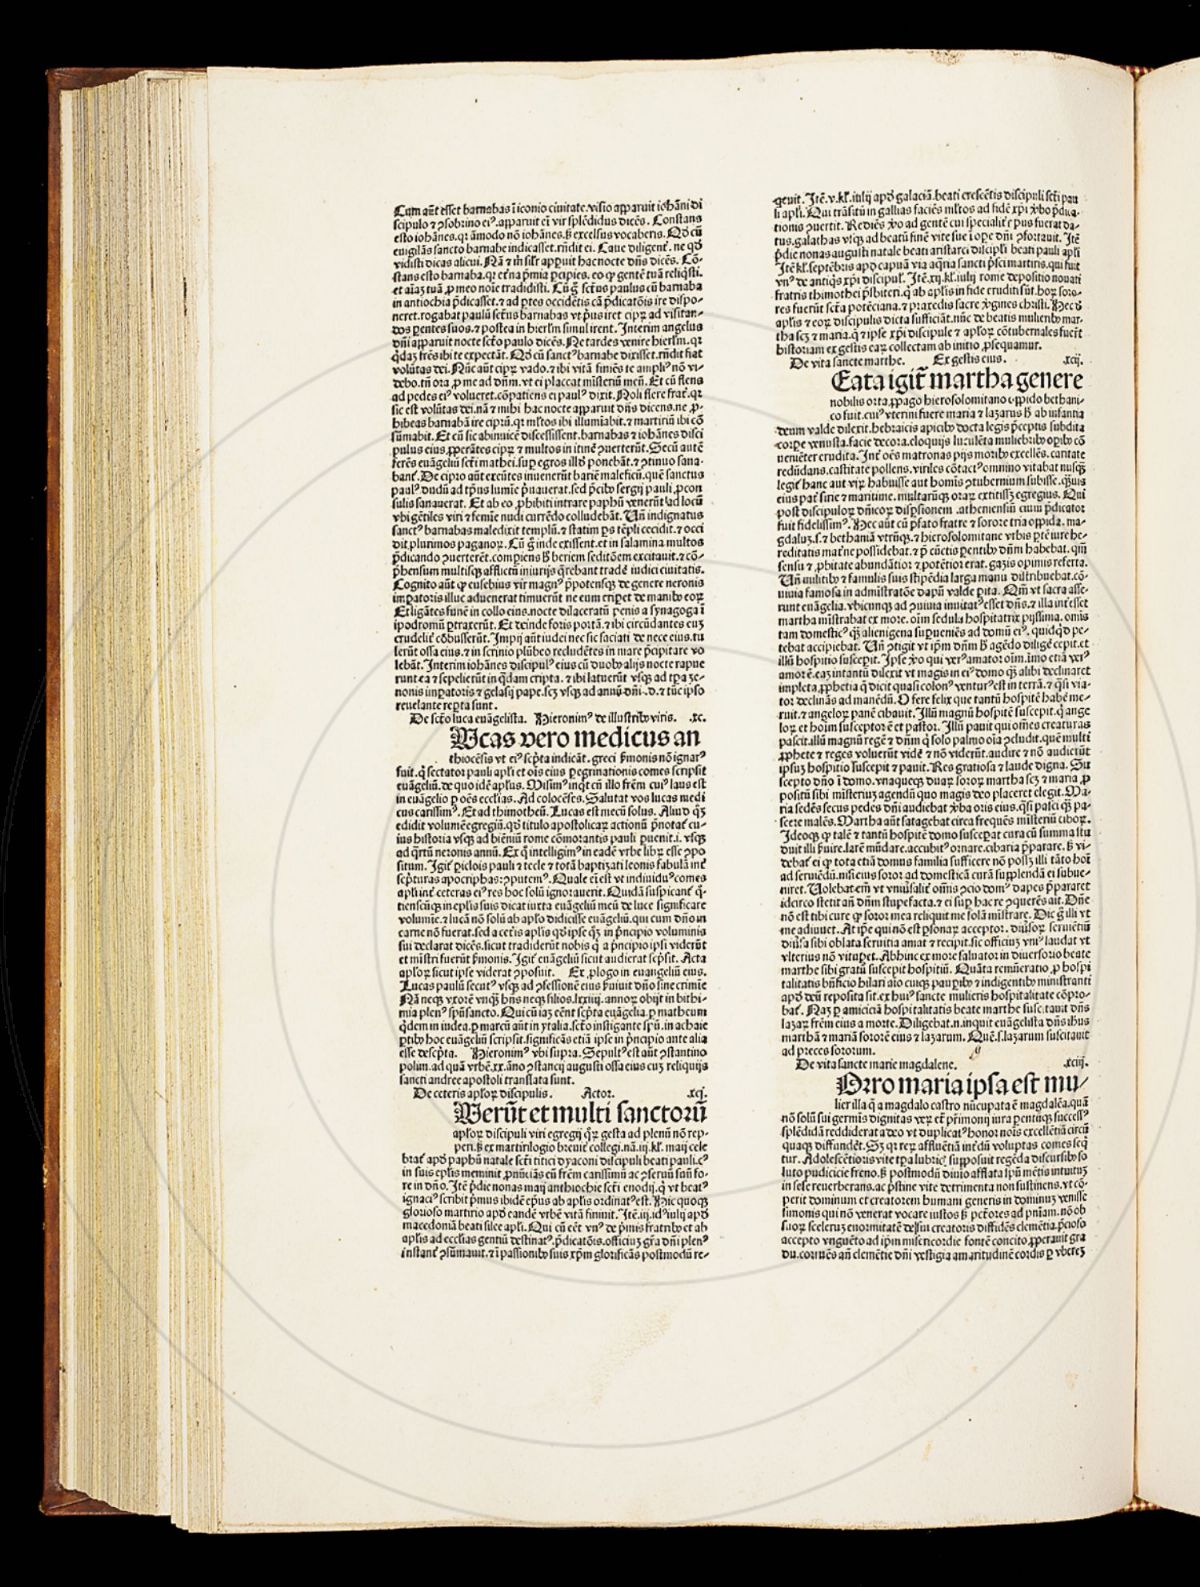 Cum aūt esset barnabas ī iconio ciuitate.visio apparuit iohāni di
scipulo ⁊ ꝯsobrino eiꝰ.apparuit eī vir splēdidus dicēs. Constans
esto iohānes.qꝛ āmodo nō iohānes.ẜ excelsus vocaberis. Qḋ cū
euigilās sancto barnabe indicasset.rn̄dit ei. Caue diligent̄. ne qḋ
vidisti dicas alicui. Nā ⁊ m̄ sil̄r apparuit hac nocte dn̄s dicēs. Cō-
stans esto barnaba.qꝛ et̄na p̄mia ꝑcipies.eo ꝙ gentē tuā reliq̄sti.
et aīaꝫ tuā ꝓ meo noīe tradidisti. Cū ḡ sct̄us paulus cū barnaba
in antiochia p̄dicasset.⁊ ad ptes occidētis cā p̄dicatōis ire dispo-
neret.rogabat paulū sct̄us barnabas vt pͥus iret cipꝝ ad visitan-
dos parentes suos.⁊ postea in hierl̄m simul irent. Interim angelus
dn̄i apparuit nocte sct̄o paulo dicēs. Ne tardes venire hierl̄m.qꝛ
q̄daꝫ fr̄es ibi te expectāt. Qḋ cū sanctꝰ barnabe dixisset.rn̄dit fiat
volūtas dei. Nūc aūt cipꝝ vado.⁊ ibi vitā finiēs te ampliꝰ nō vi-
debo.tn̄ ora ꝓ me ad dn̄m.vt ei placeat mīsteriū meū. Et cū flens
ad pedes eiꝰ volueret.cōpatiens ei paulꝰ dixit. Noli flere frat̄.qꝛ
sic est volūtas dei.nā ⁊ mihi hac nocte apparuit dn̄s dicens.ne ꝓ-
hibeas barnabā ire ciprū.qꝛ ml̄tos ibi illumīabit.⁊ martiriū ibi cō
sūmabit. Et cū sic abinuicē discessissent.barnabas ⁊ iohānes disci
pulus eius ꝓꝑātes ciprꝝ ⁊ multos in itinē ꝯuerterūt. Secū autē
ferēs euāgeliū sct̄i mathei.suꝑ egros illḋ ponebāt.⁊ ꝯtinuo sana-
bant̄. De cipro aūt exeūtes inuenerūt bariē maleficū.quē sanctus
paulꝰ dudū ad tp̄us lumīe pͥuauerat.sed p̄cibꝰ sergij pauli ꝓcon
sulis sanauerat. Et ab eo ꝓhibiti intrare paphū venerūt ad locū
vbi gētiles viri ⁊ femīe nudi currēdo colludebāt. Vn̄ indignatus
sanctꝰ barnabas maledixit templū.⁊ statim ps tēpli cecidit.⁊ occi
dit plurimos paganoꝝ. Cū ḡ inde exissent.et in salamina multos
p̄dicando ꝯuerterēt.comꝑiens ẜ beriem seditōem excitauit.⁊ cō-
p̄hensum multisꝙ afflictū iniurijs q̄rebant tradē iudici ciuitatis.
Cognito aūt ꝙ eusebius vir magnꝰ p̄potensꝙ de genere neronis
imꝑatoris illuc aduenerat timuerūt ne eum eriꝑet de manibꝰ eoꝝ
Et ligātes funē in collo eius.nocte dilaceratū ꝑ̄enis a synagoga ī
ipodromū ꝑtraxerūt. Et deinde foris portā.⁊ ibi circūdantes euꝫ
crudelit̄ cōbusserūt. Impij aūt iudei nec sic saciati de nece eius.tu
lerūt ossa eius.⁊ in scrinio plūbeo recludētes in mare p̄cipitare vo
lebāt. Interim iohānes discipulꝰ eius cū duobꝰ alijs nocte rapue
runt ea ⁊ sepelierūt in q̄dam cripta.⁊ ibi latuerūt vsꝙ ad tp̄a ze-
nonis inꝑatoris ⁊ gelasij pape.scꝫ vsꝙ ad annū dn̄i .ḋ.⁊ tūc ip̄so
reuelante reꝑta sunt.
De scō luca euāgelista. Hieronimꝰ de illustribꝰ viris. .xc.
Ucas vero medicus an
thiocēsis vt eiꝰ sc̄pta indicāt.greci ẜmonis nō ignarꝰ
fuit.q̄ sectator pauli apl̄i et oīs eius ꝑegrinationis comes scripsit
euāgeliū.de quo idē apl̄us. Misimꝰ inq̄t cū illo frēm cuiꝰ laus est
in euāgelio ꝑ oēs eccl̄ias. Ad colocēses. Salutat vos lucas medi
cus carissimꝰ. Et ad thimotheū. Lucas est mecū solus. Aliud q̄ꝫ
edidit volumē egregiū.qḋ titulo apostolicaꝝ actionū p̄notat̄ cu-
ius historia vsꝙ ad bieniū rome cōmorantis pauli ꝑuenit.i. vsꝙ
ad q̄rtū neronis annū. Ex q̄ intelligimꝰ in eadē vrbe librꝝ esse ꝯpo
situm. Igit̄ ꝑiclois pauli ⁊ tecle ⁊ totā baptiꝫati leonis fabulā int̄
sc̄pturas apocriphas ꝯputemꝰ. Quale eī est vt indiuiduꝰ comes
apl̄i int̄ ceteras eiꝰ res hoc solū ignorauerit. Quidā suspicant̄ q̄-
tienscūꝙ in ep̄lis suis dicat iuxta euāgeliū meū de luce significare
volumīe.⁊ lucā nō solū ab apl̄o didicisse euāgeliū.qui cum dn̄o in
carne nō fuerat.sed a ceteris apl̄is qḋ ip̄se q̄ꝫ in pͥncipio voluminis
sui declarat dicēs.sicut tradiderūt nobis q̄ a pͥncipio ip̄si viderūt
et mīstri fuerūt ẜmonis. Igit̄ euāgeliū sicut audierat sc̄psit. Acta
apl̄oꝝ sicut ip̄se viderat ꝯposuit. Ex ꝓlogo in euangeliū eius.
Lucas paulū secutꝰ vsꝙ ad ꝯfessionē eius ẜuiuit dn̄o sine crimīe
Nā neꝙ vxorē vnꝙ̄ hn̄s neꝙ filios.lxxiiij.annoꝝ obijt in bithi-
mia plenꝰ sp̄usancto. Qui cū iaꝫ eēnt sc̄pta euāgelia.ꝑ matheum
q̄dem in iudea.ꝑ marcū aūt in ytalia.sct̄o instigante sp̄u.in achaie
ꝑtibꝰ hoc euāgeliū scripsit.significās etiā ip̄se in pͥncipio ante alia
esse descp̄ta. Hieronimꝰ vbi supra. Sepultꝰ est aūt ꝯstantino
polim.ad quā vrbē.xx.āno ꝯstancij augusti ossa eius cuꝫ reliquijs
sancti andree apostoli translata sunt.
De ceteris apl̄oꝝ discipulis. Actor. .xcj.
Uerūt et multi sanctorū
apl̄oꝝ discipuli viri egregij q̄ꝝ gesta ad plenū nō rep-
peri.ẜ ex martirilogio breuit̄ collegi.nā.iij.kl̄. maij cele
brat̄ apḋ paphū natale sct̄i titici dyaconi discipuli beati pauli.cꝰ
in suis ep̄lis meminit ꝓnūciās eū frēm carissimū ac ꝯseruū suū fo-
re in dn̄o. Itē p̄die nonas maij anthiochie sct̄i euodij.q̄ vt beatꝰ
ignaciꝰ scribit pͥmus ibidē ep̄us ab apl̄is ordinatꝰ est. Hic quoꝙ
glorioso martirio apḋ eandē vrbē vitā finiuit. Itē.iij.idꝰ iulij apḋ
macedoniā beati silee apl̄i. Qui cū eēt vnꝰ de pͥmis fratribꝰ et ab
apl̄is ad eccl̄ias gentiū destinatꝰ.p̄dicatōis.officiuꝫ grā dn̄i plenꝰ
instant̄ ꝯsūmauit.⁊ ī passionibꝰ suis xp̄m glorificās postmodū re-
q̄euit. Itē.v.kl̄.iulij apḋ galaciā.beati crescētis discipuli sct̄i pau
li apl̄i. Qui trāsitū in gallias faciēs ml̄tos ad fidē xp̄i v̄bo p̄dica-
tionis ꝯuertit. Rediēs v̄o ad gentē cui specialit̄ pͥus fuerat da-
tus.galathas vsꝙ ad beatū finē vite sue ī oꝑe dn̄i ꝯfortauit. Itē
p̄die nonas augusti natale beati aristarci discipl̄i beati pauli apl̄i
Itē kl̄.septēbris apḋ capuā via aq̄ria sancti pͥsci martiris.qui fuit
vnꝰ de antiq̄s xp̄i discipul̄. Itē.xij.kl̄.iulij rome depositio nouati
fratris thimothei p̄sbiteri.q̄ ab apl̄is in fide eruditi sūt.hoꝝ soro-
res fuerūt sct̄a potēciana.⁊ praxedis sacre v̄gines christi. Hec ḋ
apl̄is ⁊ eoꝝ discipulis dicta sufficiāt.nūc de beatis mulieribꝰ mar-
tha scꝫ ⁊ maria.q̄ ⁊ ip̄se xp̄i discipule ⁊ apl̄oꝝ cōtubernales fuer̄t
historiam ex gestis eaꝝ collectam ab initio ꝓsequamur.
De vita sancte marthe. Ex gestis eius. .xcij.
Eata igit̄ martha genere
nobilis orta.ꝓpago hierosolomitano oppido bethani-
co fuit.cuiꝰ vterini fuere maria ⁊ laꝫarus ẜ ab infantia
deum valde dilexit.hebraicis apicibꝰ docta legis p̄ceptis subdita
corꝑe venusta.facie decora.eloquijs luculēta muliebribꝰ oꝑibꝰ cō
uenienter erudita. Int̄ oēs matronas pijs moribꝰ excellēs.caritate
redūdans.castitate pollens.viriles cōtactꝰ omnino vitabat nusꝙ̄
legit̄ hanc aut virꝝ habuisse aut homīs ꝯtubernium subisse.q̄uis
eius pat̄ sirie ⁊ maritime.multarūꝙ oraꝝ extitissꝫ egregius. Qui
post discipuloꝝ dn̄icoꝝ disꝑsionem .atheniensiū ciuiu pͥdicator
fuit fidelissimꝰ. Hec aūt cū p̄fato fratre ⁊ sorore tria oppida.ma-
gdaluꝫ.s.⁊ bethaniā vtrūꝙ.⁊ hierosolomitane vrbis ꝑtē iure he-
reditatis mat̄ne possidebat.⁊ p̄ cūctis ꝑentibꝰ dn̄ni habebat.qm̄
sensu ⁊ ꝓbitate abundātior ⁊ potētior erat.gaꝫis opimis referta.
Vn̄ militibꝰ ⁊ famulis suis stipēdia larga manu distribuebat.cō-
uiuia famosa in admīstratōe dapū valde ꝑita. Qm̄ vt sacra asse-
runt euāgelia.vbicunꝙ ad ꝯuiuia inuitatꝰ esset dn̄s.⁊ illa int̄esset
martha mīstrabat ex more.oīm sedula hospitatrix pijssima.omīs
tam domesticꝰ q̄ꝫ alienigena suꝑueniēs ad domū eiꝰ.quidq̄d pe-
tebat accipiebat. Vn̄ ꝯtigit vt ip̄m dn̄m ẜ agēdo diligēt̄ cepit.et
illū hospitio suscepit. Ip̄se v̄o qui verꝰ amator oīm.īmo etiā verꝰ
amor ē.eaꝫ intantū dilexit vt magis in eiꝰ domo q̄ꝫ alibi declinaret
impleta ꝓphetia q̄ dicit quasi colonꝰ venturꝰ est in terrā.⁊ q̄si via-
tor declinās ad manēdū. O fere felix que tantū hospitē habē me-
ruit.⁊ angeloꝝ panē cibauit. Illū magnū hospitē suscepit.q̄ ange
loꝝ et hoīm susceptor ē et pastor. Illū pauit qui om̄es creaturas
pascit.illū magnū regē ⁊ dn̄m q̄ solo palmo oīa ꝯcludit.quē multi
ꝓphete ⁊ reges voluerūt vidē ⁊ nō viderūt.audire ⁊ nō audierūt
ip̄suꝫ hospitio suscepit ⁊ pauit. Res gratiosa ⁊ laude digna. Su
scepto dn̄o ī domo.vnaqueꝙ duaꝝ soroꝝ martha scꝫ ⁊ maria ꝓ
positū sibi misteriuꝫ agendū quo magis deo placeret elegit. Ma-
ria sedēs secus pedes dn̄i audiebat v̄ba oris eius.q̄si pasci q̄ꝫ pa-
scere malēs. Martha aūt satagebat circa frequēs mīsteriū ciboꝝ.
Ideoꝙ ꝙ talē ⁊ tantū hospitē domo susceperat cura cū summa stu
duit illi ẜuire.larē mūdare.accubitꝰ ornare.cibaria p̄parare. ẜ vi-
debat̄ ei ꝙ tota etiā domus familia sufficere nō possꝫ illi tāto hoī
ad seruiēdū.nisi eius soror ad domesticā curā supplendā ei subue-
niret. Uolebat em̄ vt vniuersalit̄ oīs ꝯcio domꝰ dapes p̄pararet
idcirco stetit añ dn̄m stupefacta.⁊ ei suꝑ hac re ꝯquerēs ait. Dn̄e
nō est tibi cure ꝙ soror mea reliquit me solā mīstrare. Dic ḡ illi vt
me adiuuet. At ip̄e qui nō est ꝑsonaꝝ acceptor. diuersoꝝ seruētiū
diuersa sibi oblata seruitia amat ⁊ recipit.sic officiuꝫ vniꝰ laudat vt
vlterius nō vituꝑet. Abhinc ex more saluator in diuersorio beate
marthe sibi gratū suscepit hospitiū. Quāta remūeratio ꝓ hospi
talitatis bn̄ficio hilari aīo cuiꝙ paupibꝰ ⁊ indigentibꝰ ministranti
apḋ deū reposita sit.ex huiꝰ sancte mulieris hospitalitate cōpro-
bat̄. Naꝫ ꝑ amiciciā hospitalitatis beate marthe suscitauit dn̄s
laꝫaꝝ frēm eius a morte. Diligebat.n.inquit euāgelista dn̄s ihus
marthā ⁊ mariā sororē eius ⁊ laꝫarum. Quē.s.laꝫarum suscitauit
ad preces sororum.
De vita sancte marie magdalene. .xciij.
Orro maria ipsa est mu/
lier illa q̄ a magdalo castro nūcupata ē magdalēa.quā
nō solū sui germīs dignitas veꝝ et̄ pͥrimonij iura ꝑentuꝙ successꝰ
splēdidā reddiderat adeo vt duplicatꝰ honor noīs excellētiā circū
quaꝙ diffundēt. Sꝫ qꝛ reꝝ affluētiā int̄dū voluptas comes seq̄
tur. Adolescētioris vite tp̄a lubricꝭ supposuit regēda discursibꝰ so
luto pudicicie freno. ẜ postmodū diuio afflata sp̄u mētis intuituꝫ
in sese reuerberans.ac pristine vite detrimenta non sustinens.vt cō-
perit dominum et creatorem humani generis in dominuꝫ venisse
simonis qui nō venerat vocare iustos ẜ pct̄ores ad pn̄iam.nō ob
suoꝝ sceleruꝫ enormitatē delsui creatoris diffidēs clemētia.pͥcioso
accepto vnguēto ad ip̄m misericordie fontē concito ꝓꝑerauit gra
du.corruēs añ clemētie dn̄i vestigia amaritudinē cordis ꝑ vberes